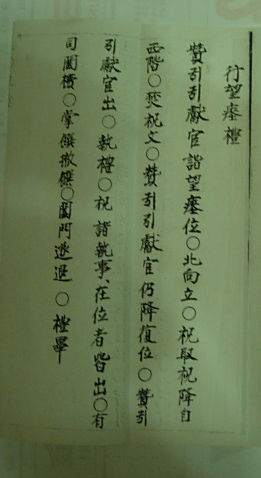 行望瘞禮
贊引引獻官詣望瘞位○北向立○祝取祝降自
西階○焚祝文○贊引引獻官仍降復位○贊引
引獻官出○執禮○祝諸執事、在位者皆出○有
司闔櫝○掌饌撤饌○闔門遂退○禮畢